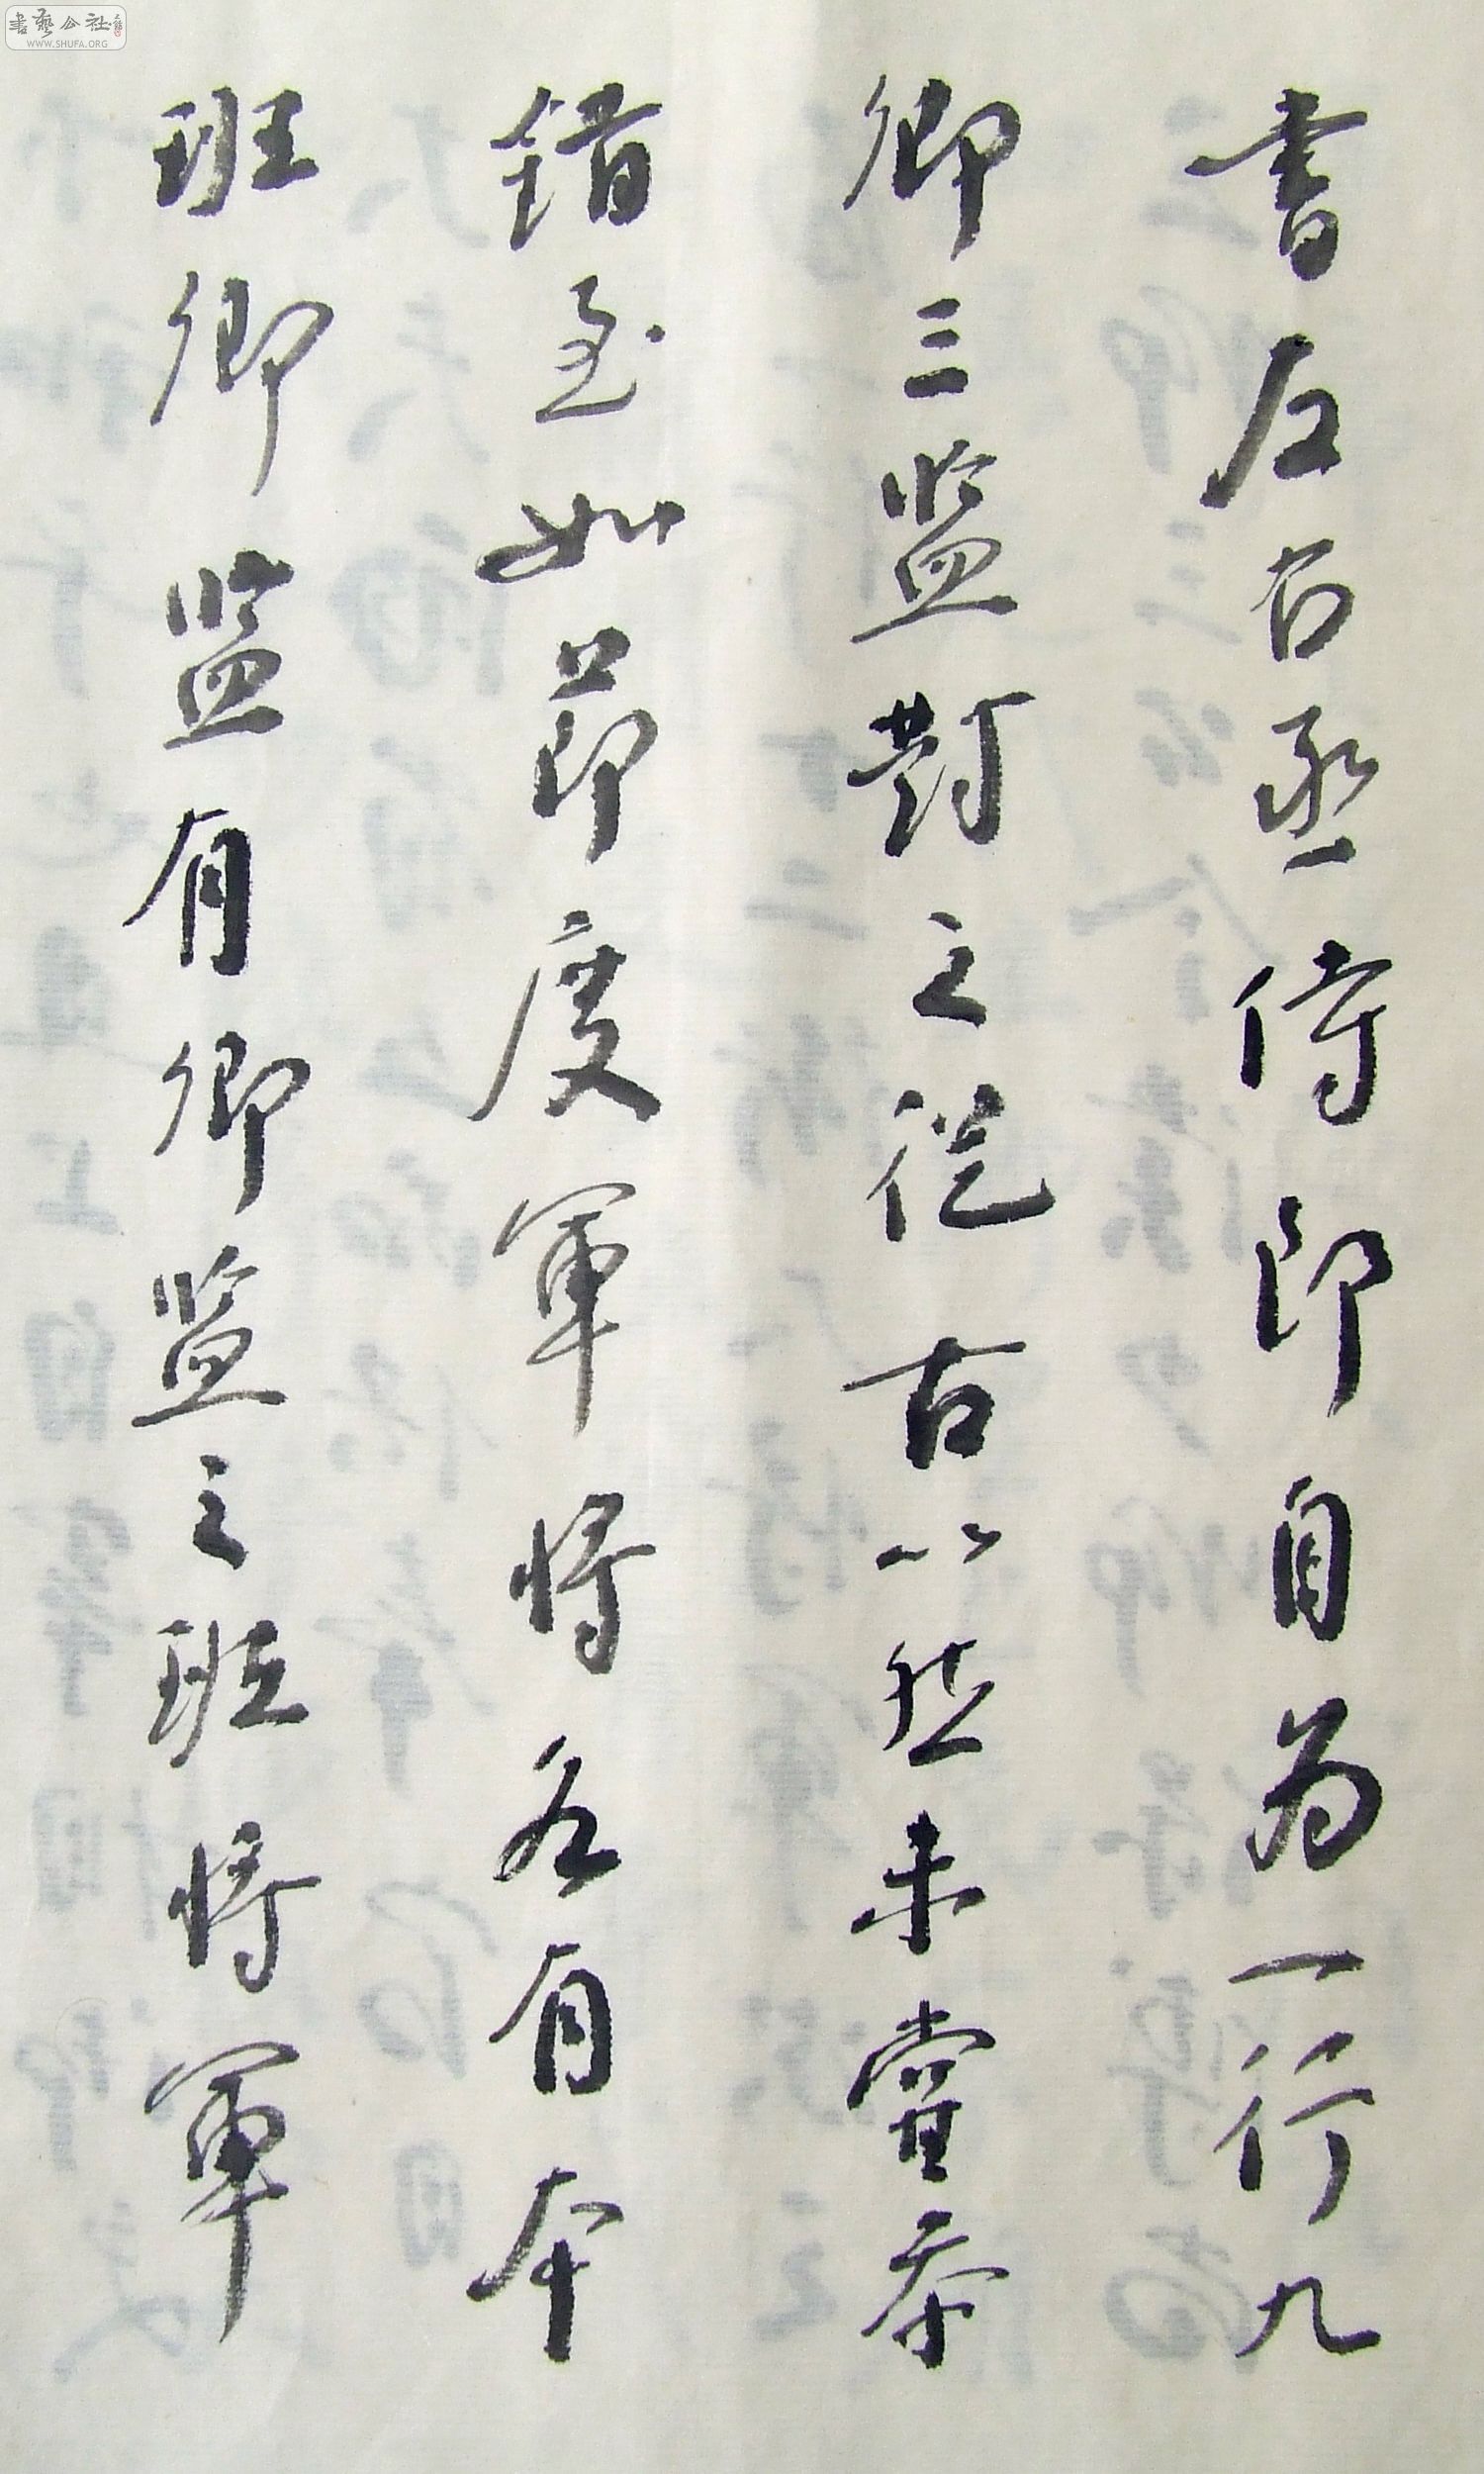 書左右丞侍郎自為一行九
卿三監對之從古以然未嘗參
錯至如節度軍將各有本
班卿監有卿監之班將軍
書藝公社
WWW.SHUFA.ORG